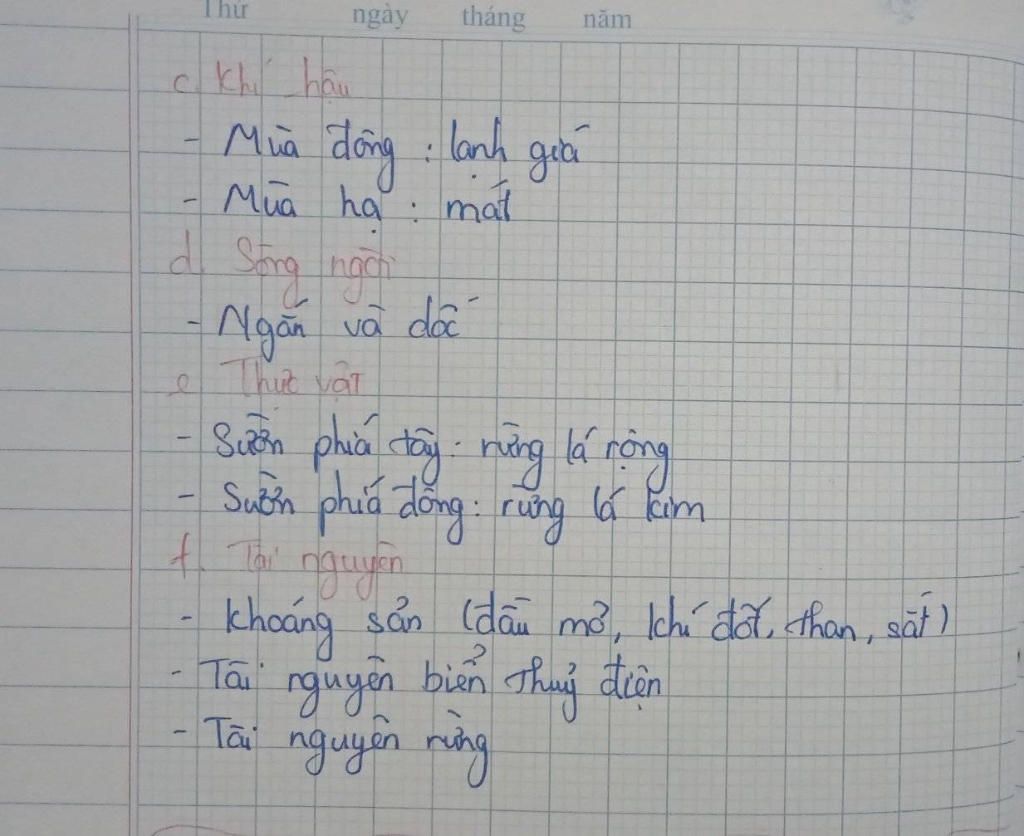 Thứ ngày tháng năm
c. Khí hậu
- Mùa đông : lạnh giá
- Mùa hạ : mát
d. Sông ngòi
- Ngắn và dốc
e. Thực vật
- Sườn phía tây : rừng lá rộng
- Sườn phía đông : rừng lá kim
f. Tài nguyên
- Khoáng sản (dầu mỏ, khí đốt, than, sắt)
- Tài nguyên biển thuỷ điện
- Tài nguyên rừng